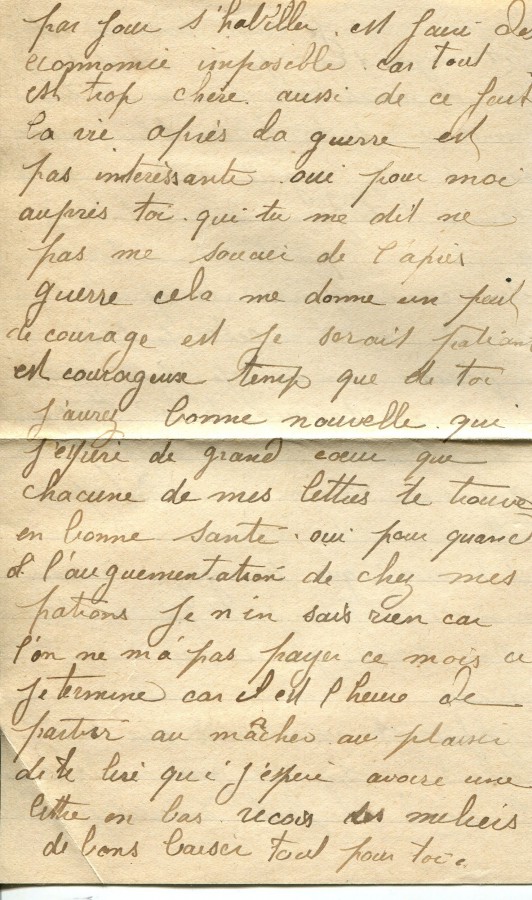 par jour s'habiller est faire des
economie imposible car tout
est trop chere aussi de ce fait
la vie après la guerre est
pas interèssante oui pour moi
auprès toi qui tu me dit ne
pas me soucui de l'apies
guerre cela me donne un peut
de courage est je serait patiant
est courageux temp que de toi
j'aurez bonne nouvelle qui
j'espere de grand coeur que
chacune de mes lettres te trouve
en bonne santé oui pour quand
l'auguementation de chez mes
patrons je n'in sais rien car
l'on ne m'á pas payer ce mois ci
je termine car il est l'heure de
partir au mâcher au plaisir
de te lire qui j'espere avoire une
lettre en bas recois des miliers
de bons baiser tout pour toi.